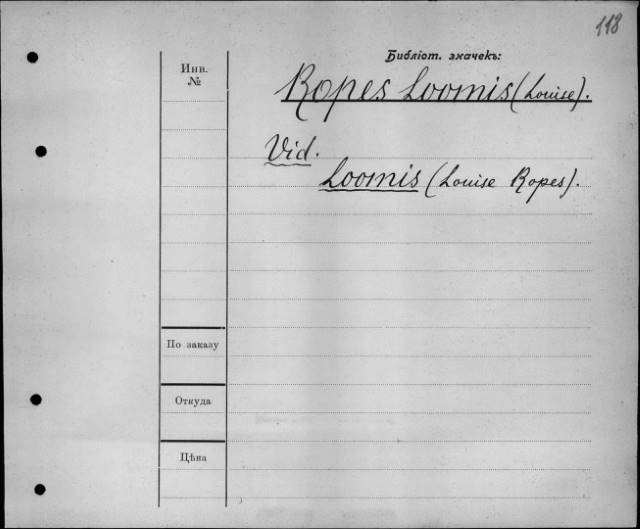 118
Библіот. значекъ:
Инв.
№
Ropes Loomis (Louise).
Vid.
Loomis (Louise Ropes).
По заказу
Откуда
Цѣна